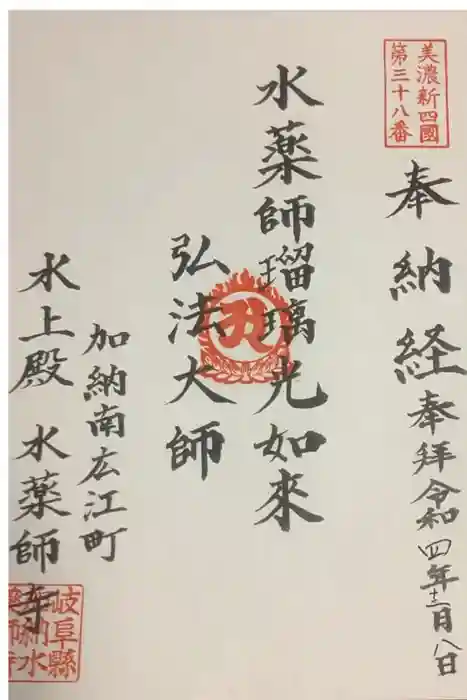 美濃新四國
第三十八番
奉納経 奉拜令和四年十二月八日
水薬師瑠璃光如來
弘法大師
加納南広江町
水上殿 水薬師寺
岐阜縣
納水
薬師寺